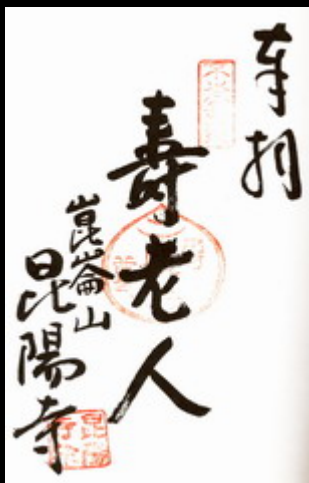 奉拝
壽老人
崑崙山
昆陽寺